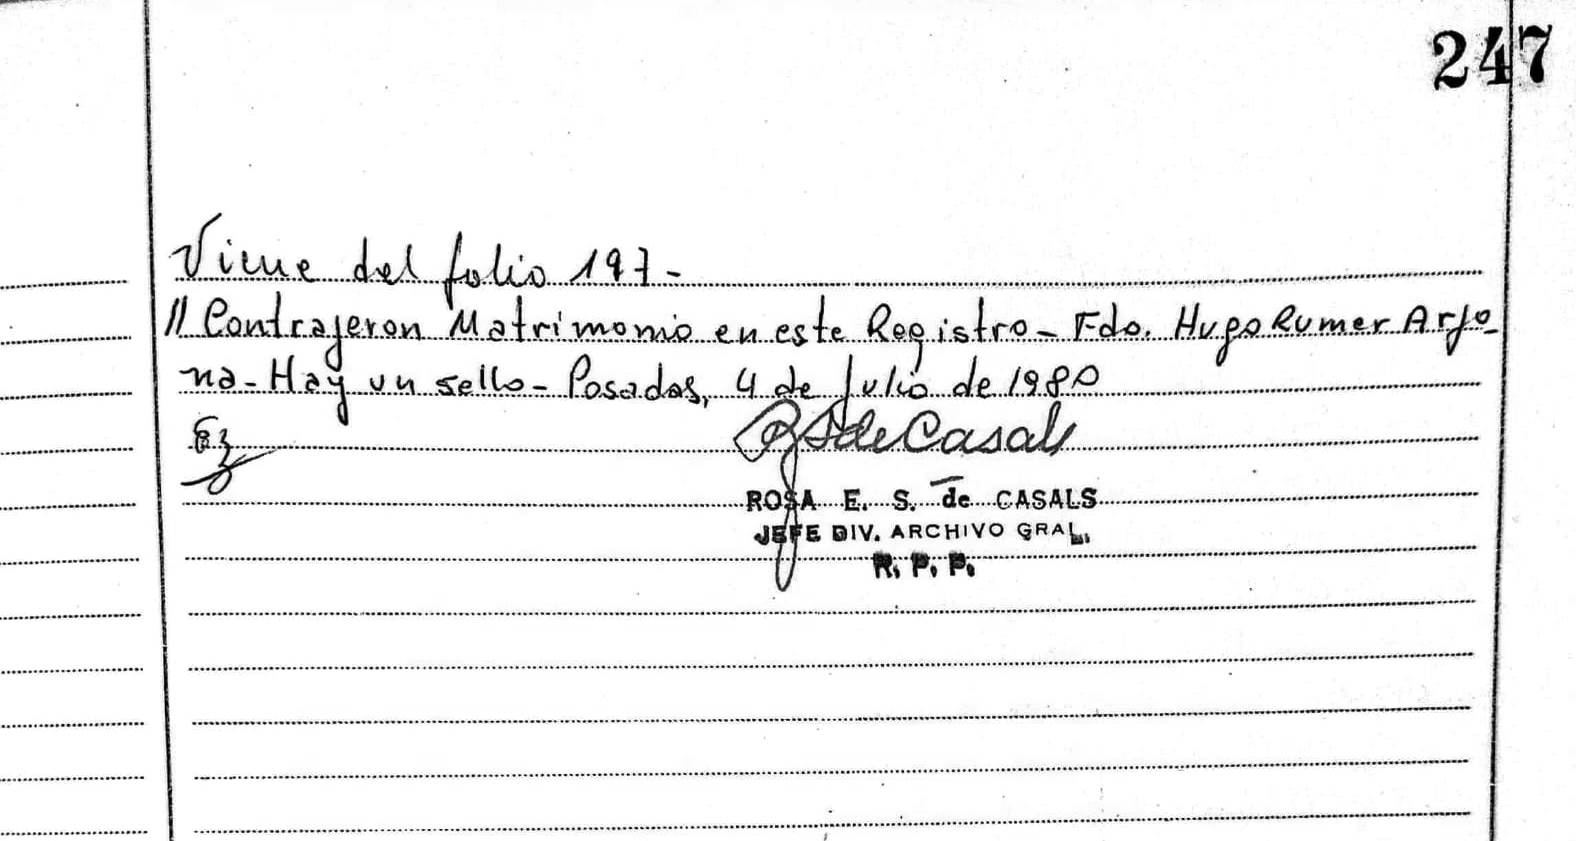 247
Viene del folio 197-
// Contrajeron Matrimonio en este Registro- Fdo. Hugo Rumer Arjo-
na- Hay un sello- Posadas, 4 de Julio de 1980
RSdeCasals
ROSA E. S. de CASALS
JEFE DIV. ARCHIVO GRAL.
R. P. P.